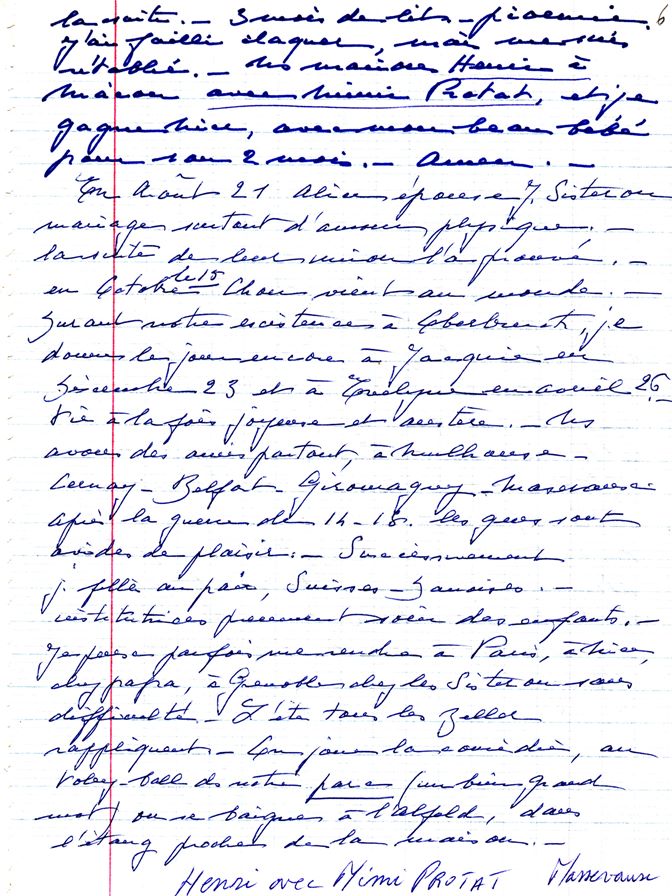 6
la suite. – 3 mois de lits – pioemie.
J'ai failli claquer, mais me suis
rétablie. – Ns marions Henri à
Mâcon avec Mimi Protat, et je
gagne Nice, avec mon beau bébé
pour son 2 mois. – Amen. –
En Août 21 Alice épouse J. Sisteron
mariage surtout d'amour physique. –
la suite de leur union l'a prouvé. –
en Octobre le 15 Chou vient au monde. –
Durant notre existence à Oberbruck, je
donne le jour encore à Jacquie en
Décembre 23 et à Evelyne en avril 26 –
Vie à la fois joyeuse et austère. – Ns
avons des amis partout, à Mulhouse –
Cernay – Belfort – Giromagny – Massevaux
après la guerre de 14-18. les gens sont
avides de plaisir. – Successivement
j. filles au pair, Suisses – Danoises. –
institutrices prennent soin des enfants. –
Je peux parfois me rendre à Paris, à Nice,
chez papa, à Grenoble chez les Sisteron sans
difficulté – L'été tous les Zeller
rappliquent – On joue la comédie, au
voley-ball ds notre parc (un bien grand
mot) on se baigne à l'Alfeld, dans
l'étang proche de la maison. –
Henri avec Mimi PROTAT Massevaux